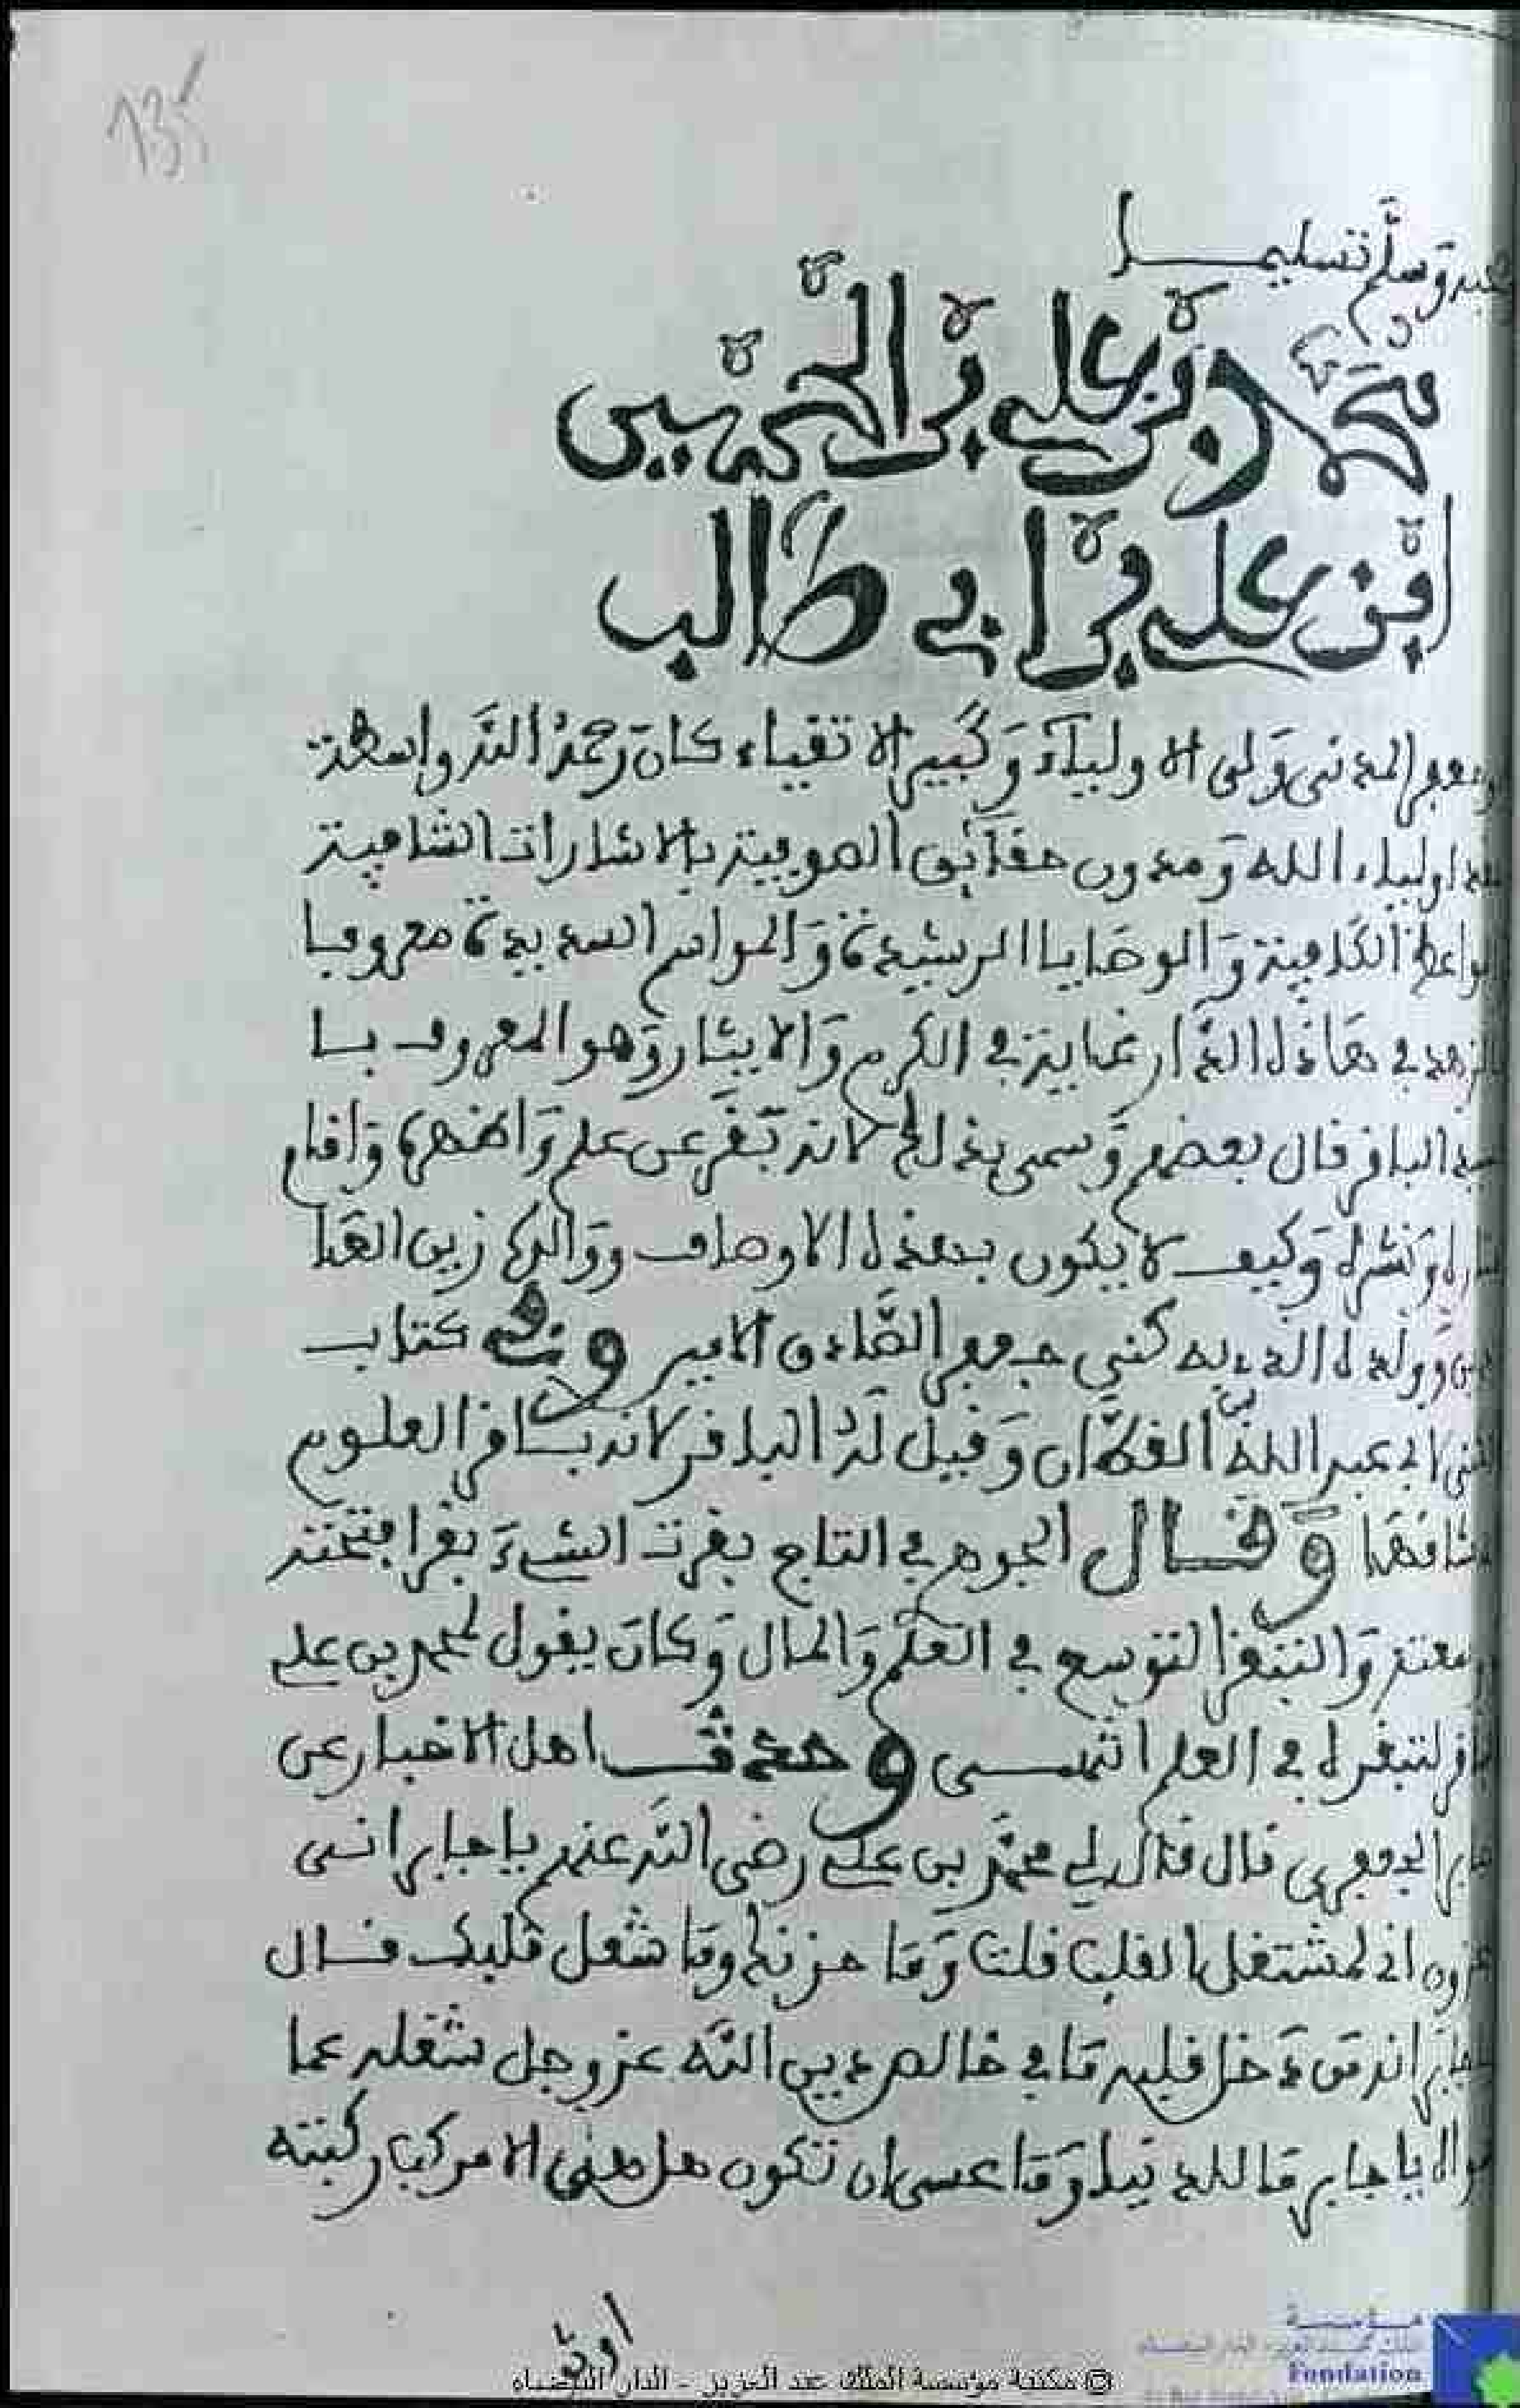 135
وسلم تسليما
محمد بن علي بن الحسين
ابن علي بن ابي طالب
المدني ولي الاولياء وكبير الاتقياء كان رحمه الله واسطة
اولياء الله ومدون حقائق الصوفية بالاشارات الشافية
والوصايا الرشيدة والمراسم السديدة معروفا
بالزهد في هاذه الدار غاية في الكرم والايثار وهو المعروف با
الباقر قال بعضهم وسمي بذالك لانه تبقر عن علم واظهره وافام
ونشره وكيف لا يكون بهذه الاوصاف ووالده زين العا
وولده الذي به كني جعفر الصادق الامير وفي كتاب
لابي عبد الله القطان وقيل له الباقر لانه باقر العلوم
وقال الجوهري في التاج بقرت الشيء بقرا فتحته
والتبقر التوسع في العلم والمال وكان يقول لمحمد بن علي
لتبقره في العلم انتهى وحدث اهل الاخبار عن
الجعفي قال قال لي محمد بن علي رضي الله عنهم يا جابر اني
اني لمشتغل القلب قلت وما حزنك وما شغل قلبك قال
انه من دخل قلبه ما في خالص دين الله عز وجل شغله عما
يا جابر ما الدنيا وما عسى ان تكون هل هي الا مركب ركبته
اوثو
© مكتبة مؤسسة الملك عبد العزيز - الدار البيضاء
مؤسسة
Fondation